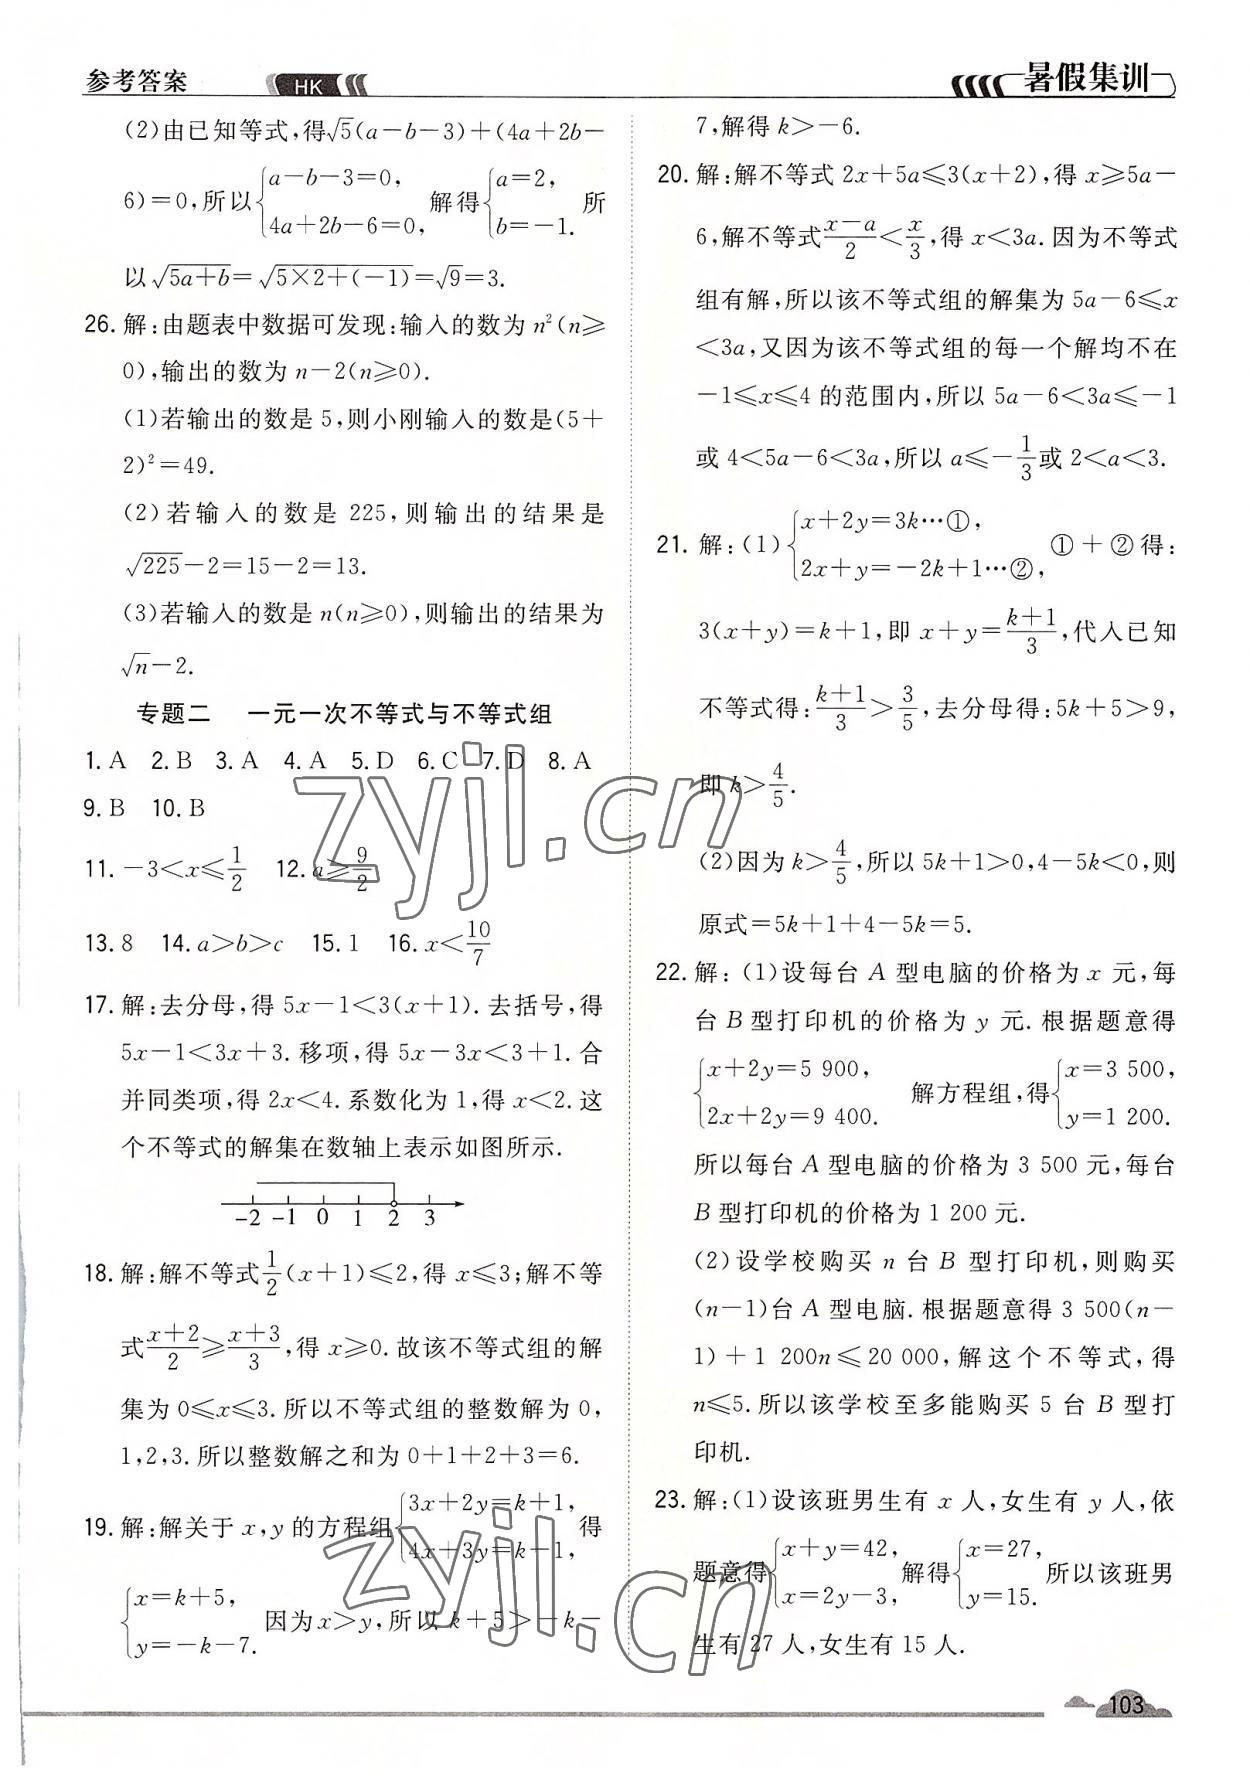 参考答案
HK
暑假集训
(2)由已知等式,得√5(a-b-3)+(4a+2b-
6)=0,所以{a-b-3=0, 4a+2b-6=0, 解得{a=2, b=-1. 所
以√(5a+b)=√(5×2+(-1))=√9=3.
26. 解:由题表中数据可发现:输入的数为 n²(n≥
0),输出的数为 n-2(n≥0).
(1)若输出的数是 5,则小刚输入的数是(5+
2)²=49.
(2)若输入的数是 225,则输出的结果是
√225-2=15-2=13.
(3)若输入的数是 n(n≥0),则输出的结果为
√n-2.
专题二 一元一次不等式与不等式组
1. A 2. B 3. A 4. A 5. D 6. C 7. D 8. A
9. B 10. B
11. -3<x≤1/2 12. a≥9/2
13. 8 14. a>b>c 15. 1 16. x<10/7
17. 解:去分母,得 5x-1<3(x+1). 去括号,得
5x-1<3x+3. 移项,得 5x-3x<3+1. 合
并同类项,得 2x<4. 系数化为 1,得 x<2. 这
个不等式的解集在数轴上表示如图所示.
-2 -1 0 1 2 3
18. 解:解不等式1/2(x+1)≤2,得 x≤3;解不等
式(x+2)/2≥(x+3)/3,得 x≥0. 故该不等式组的解
集为 0≤x≤3. 所以不等式组的整数解为 0,
1,2,3. 所以整数解之和为 0+1+2+3=6.
19. 解:解关于 x,y 的方程组{3x+2y=k+1, 4x+3y=k-1, 得
{x=k+5, y=-k-7. 因为 x>y,所以 k+5>-k-
7,解得 k>-6.
20. 解:解不等式 2x+5a≤3(x+2),得 x≥5a-
6,解不等式(x-a)/2<x/3,得 x<3a. 因为不等式
组有解,所以该不等式组的解集为 5a-6≤x
<3a,又因为该不等式组的每一个解均不在
-1≤x≤4 的范围内,所以 5a-6<3a≤-1
或 4<5a-6<3a,所以 a≤-1/3或 2<a<3.
21. 解:(1){x+2y=3k…①, 2x+y=-2k+1…②, ①+②得:
3(x+y)=k+1,即 x+y=(k+1)/3,代入已知
不等式得:(k+1)/3>3/5,去分母得:5k+5>9,
即 k>4/5.
(2)因为 k>4/5,所以 5k+1>0,4-5k<0,则
原式=5k+1+4-5k=5.
22. 解:(1)设每台 A 型电脑的价格为 x 元,每
台 B 型打印机的价格为 y 元. 根据题意得
{x+2y=5 900, 2x+2y=9 400. 解方程组,得{x=3 500, y=1 200.
所以每台 A 型电脑的价格为 3 500 元,每台
B 型打印机的价格为 1 200 元.
(2)设学校购买 n 台 B 型打印机,则购买
(n-1)台 A 型电脑. 根据题意得 3 500(n-
1)+1 200n≤20 000,解这个不等式,得
n≤5. 所以该学校至多能购买 5 台 B 型打
印机.
23. 解:(1)设该班男生有 x 人,女生有 y 人,依
题意得{x+y=42, x=2y-3, 解得{x=27, y=15. 所以该班男
生有 27 人,女生有 15 人.
zyjl.cn
zyjl.cn
103